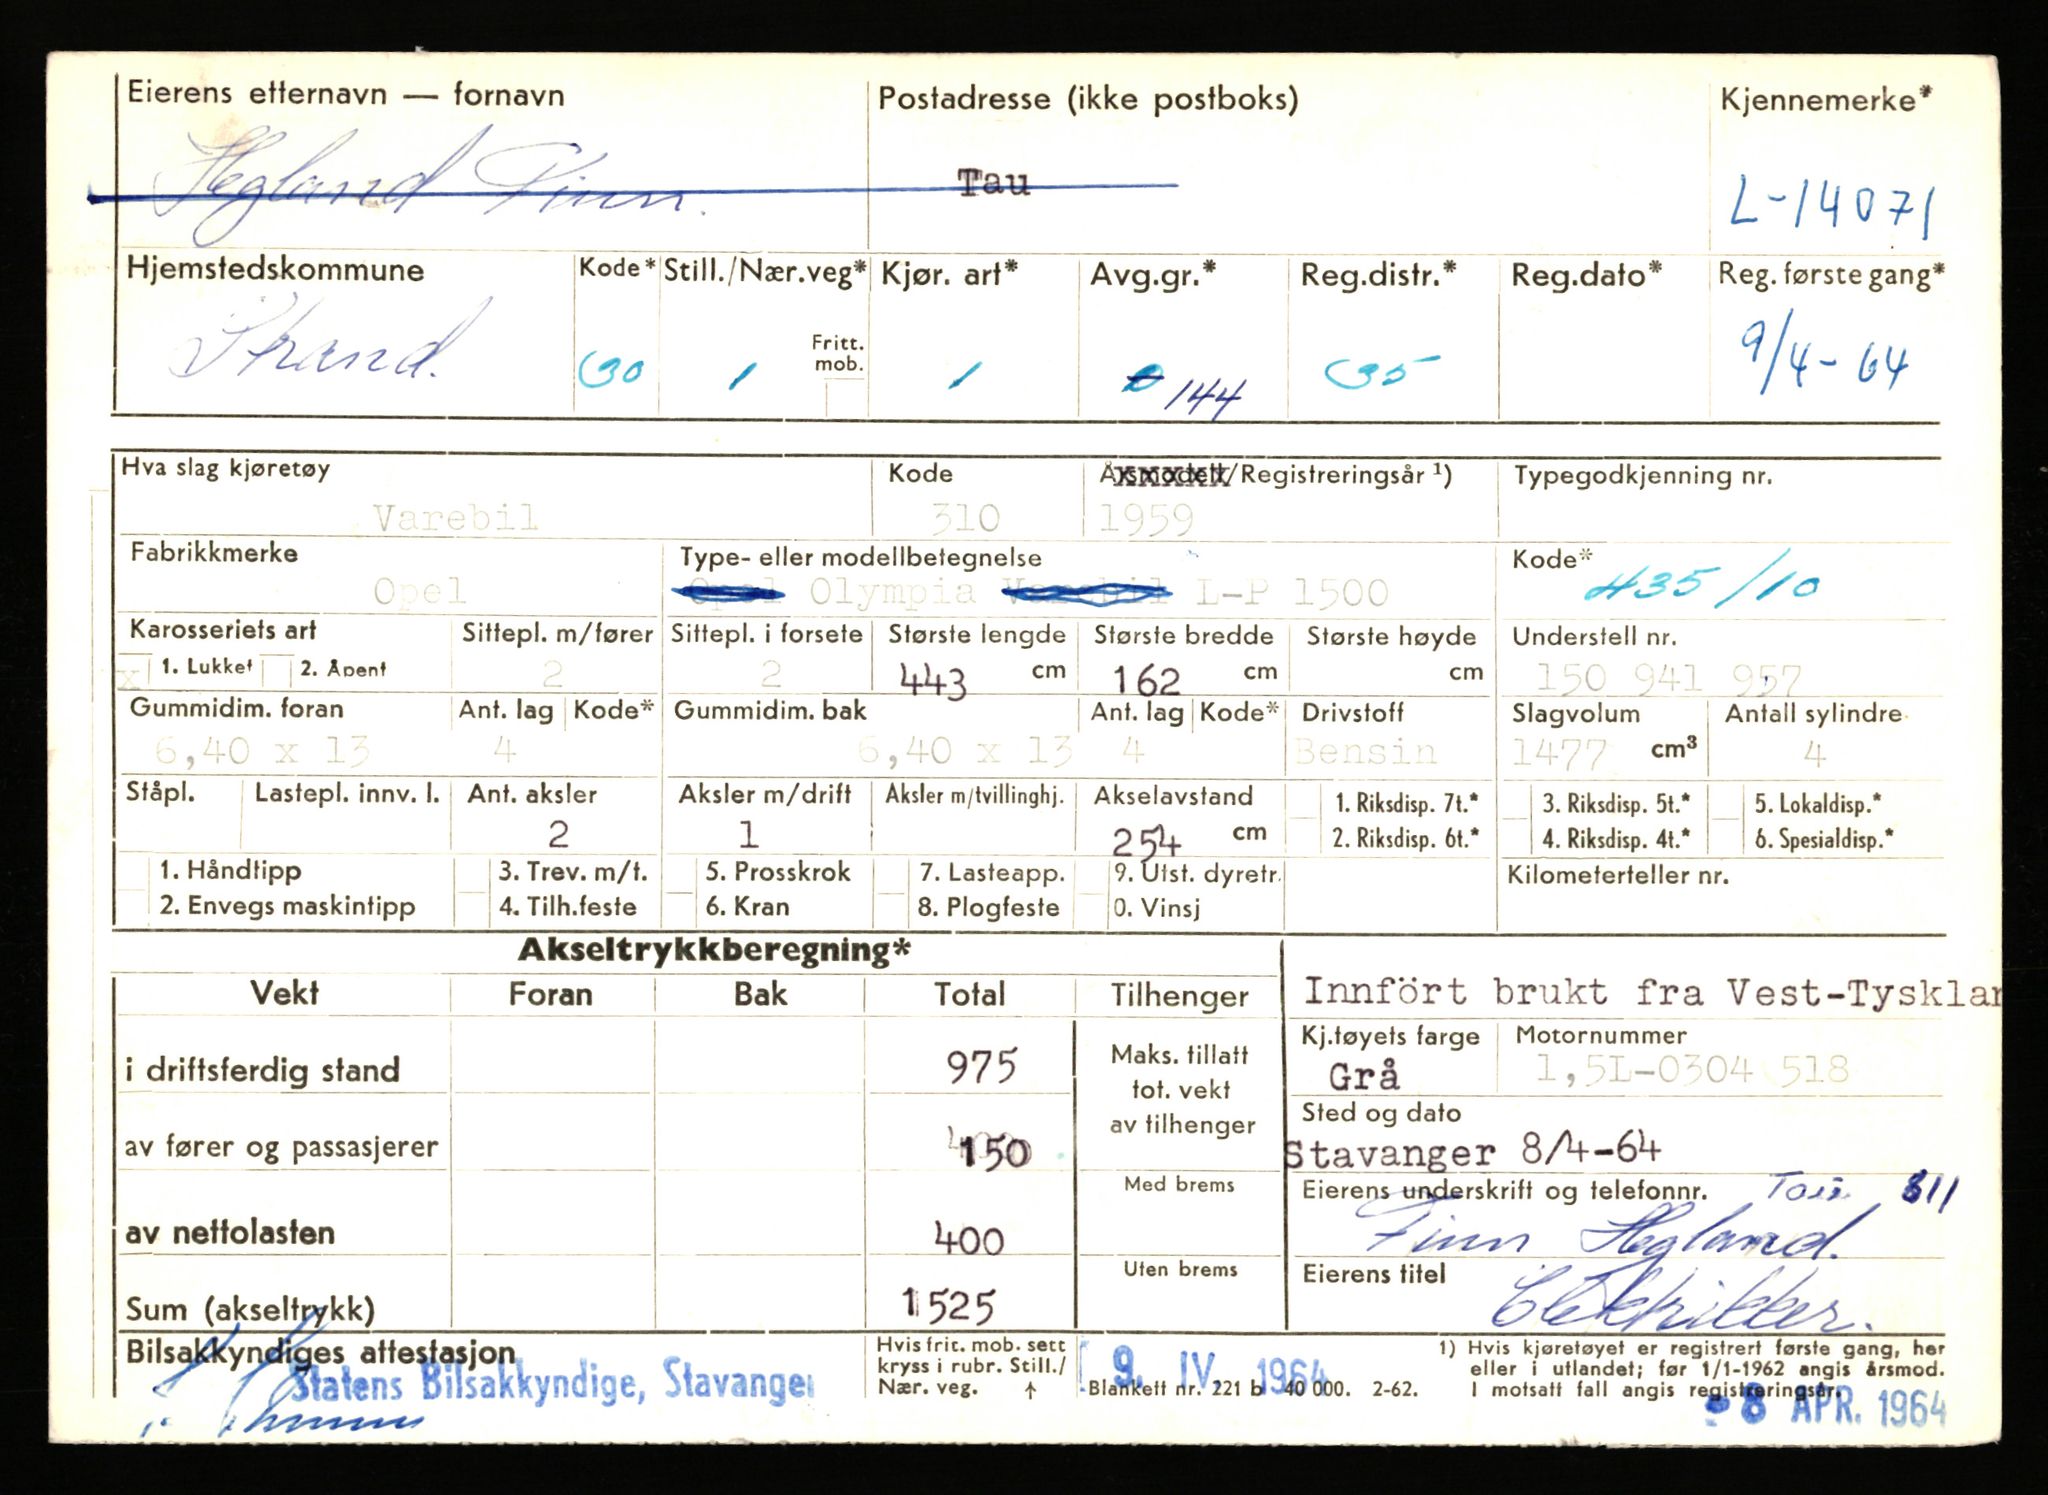 Eierens etternavn — fornavn Postadresse (ikke postboks) Kjennemerke*
Hegland Finn. Tau L-14071
Hjemstedskommune Kode* Still./Nær.veg* Kjør. art* Avg.gr.* Reg.distr.* Reg.dato* Reg. første gang*
Strand. 30 1 Fritt. mob. 1 0 144 35 9/4-64
Hva slag kjøretøy Kode Årsmodell/Registreringsår ¹) Typegodkjenning nr.
Varebil 310 1959
Fabrikkmerke Type- eller modellbetegnelse Kode*
Opel Opel Olympia Varebil L-P 1500 435/10
Karosseriets art Sittepl. m/fører Sittepl. i forsete Største lengde Største bredde Største høyde Understell nr.
x 1. Lukket 2. Åpent 2 2 443 cm 162 cm cm 150 941 957
Gummidim. foran Ant. lag Kode* Gummidim. bak Ant. lag Kode* Drivstoff Slagvolum Antall sylindre
6,40 x 13 4 6,40 x 13 4 Bensin 1477 cm³ 4
Ståpl. Lastepl. innv. l. Ant. aksler Aksler m/drift Aksler m/tvillinghj. Akselavstand 1. Riksdisp. 7t.* 3. Riksdisp. 5t.* 5. Lokaldisp.*
2 1 254 cm 2. Riksdisp. 6t.* 4. Riksdisp. 4t.* 6. Spesialdisp.*
1. Håndtipp 3. Trev. m/t. 5. Prosskrok 7. Lasteapp. 9. Utst. dyretr. Kilometerteller nr.
2. Envegs maskintipp 4. Tilh.feste 6. Kran 8. Plogfeste 0. Vinsj
Akseltrykkberegning*
Vekt Foran Bak Total Tilhenger Innfört brukt fra Vest-Tysklan
Kj.tøyets farge Motornummer
i driftsferdig stand 975 Maks. tillatt tot. vekt av tilhenger Grå 1,5L-0304 518
Sted og dato
av fører og passasjerer 150 Stavanger 8/4-64
Med brems Eierens underskrift og telefonnr. Tau 811
av nettolasten 400 Finn Hegland.
Uten brems Eierens titel
Sum (akseltrykk) 1525 Elektriker.
Bilsakkyndiges attestasjon Hvis frit. mob. sett 1) Hvis kjøretøyet er registrert første gang, her
kryss i rubr. Still./ 9. IV. 1964 eller i utlandet; før 1/1-1962 angis årsmod.
Statens Bilsakkyndige, Stavanger Nær. veg. ↑ Blankett nr. 221 b 40 000. 2-62. I motsatt fall angis registreringsår.
- 8 APR. 1964